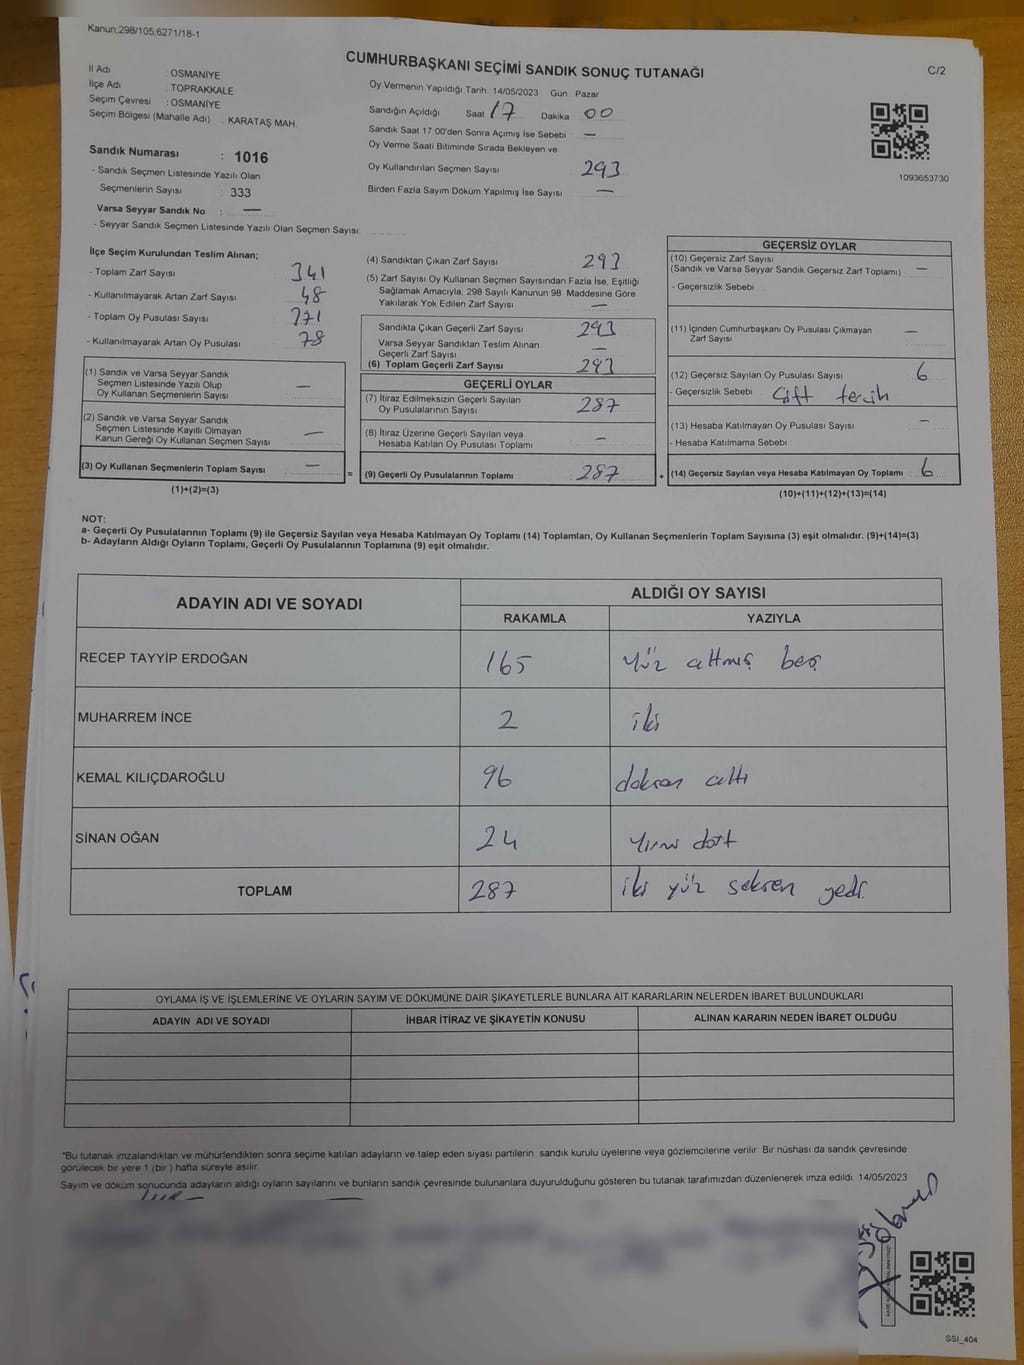 Kanun;298/105,6271/18-1
CUMHURBAŞKANI SEÇİMİ SANDIK SONUÇ TUTANAĞI
C/2
İl Adı : OSMANİYE
İlçe Adı : TOPRAKKALE
Seçim Çevresi : OSMANİYE
Seçim Bölgesi (Mahalle Adı) : KARATAŞ MAH.
Sandık Numarası : 1016
- Sandık Seçmen Listesinde Yazılı Olan
Seçmenlerin Sayısı : 333
Varsa Seyyar Sandık No : —
- Seyyar Sandık Seçmen Listesinde Yazılı Olan Seçmen Sayısı:
Oy Vermenin Yapıldığı Tarih 14/05/2023 Gün Pazar
Sandığın Açıldığı Saat 17 Dakika 00
Sandık Saat 17:00'den Sonra Açımış İse Sebebi —
Oy Verme Saati Bitiminde Sırada Bekleyen ve
Oy Kullandırılan Seçmen Sayısı 293
Birden Fazla Sayım Döküm Yapılmış İse Sayısı —
1093653730
İlçe Seçim Kurulundan Teslim Alınan;
- Toplam Zarf Sayısı 341
- Kullanılmayarak Artan Zarf Sayısı 48
- Toplam Oy Pusulası Sayısı
- Kullanılmayarak Artan Oy Pusulası 78
(1) Sandık ve Varsa Seyyar Sandık
Seçmen Listesinde Yazılı Olup
Oy Kullanan Seçmenlerin Sayısı —
(2) Sandık ve Varsa Seyyar Sandık
Seçmen Listesinde Kayıtlı Olmayan
Kanun Gereği Oy Kullanan Seçmen Sayısı —
(3) Oy Kullanan Seçmenlerin Toplam Sayısı — =
(1)+(2)=(3)
(4) Sandıktan Çıkan Zarf Sayısı 293
(5) Zarf Sayısı Oy Kullanan Seçmen Sayısından Fazla İse, Eşitliği
Sağlamak Amacıyla, 298 Sayılı Kanunun 98. Maddesine Göre
Yakılarak Yok Edilen Zarf Sayısı —
Sandıkta Çıkan Geçerli Zarf Sayısı 293
Varsa Seyyar Sandıktan Teslim Alınan
Geçerli Zarf Sayısı —
(6) Toplam Geçerli Zarf Sayısı 293
GEÇERLİ OYLAR
(7) İtiraz Edilmeksizin Geçerli Sayılan
Oy Pusulalarının Sayısı 287
(8) İtiraz Üzerine Geçerli Sayılan veya
Hesaba Katılan Oy Pusulası Toplamı —
(9) Geçerli Oy Pusulalarının Toplamı 287 +
GEÇERSİZ OYLAR
(10) Geçersiz Zarf Sayısı
(Sandık ve Varsa Seyyar Sandık Geçersiz Zarf Toplamı) —
- Geçersizlik Sebebi
(11) İçinden Cumhurbaşkanı Oy Pusulası Çıkmayan
Zarf Sayısı —
(12) Geçersiz Sayılan Oy Pusulası Sayısı 6
- Geçersizlik Sebebi Çift tercih
(13) Hesaba Katılmayan Oy Pusulası Sayısı —
- Hesaba Katılmama Sebebi
(14) Geçersiz Sayılan veya Hesaba Katılmayan Oy Toplamı 6
(10)+(11)+(12)+(13)=(14)
NOT:
a- Geçerli Oy Pusulalarının Toplamı (9) ile Geçersiz Sayılan veya Hesaba Katılmayan Oy Toplamı (14) Toplamları, Oy Kullanan Seçmenlerin Toplam Sayısına (3) eşit olmalıdır. (9)+(14)=(3)
b- Adayların Aldığı Oyların Toplamı, Geçerli Oy Pusulalarının Toplamına (9) eşit olmalıdır.
ADAYIN ADI VE SOYADI
ALDIĞI OY SAYISI
RAKAMLA YAZIYLA
RECEP TAYYİP ERDOĞAN 165 Yüz altmış beş
MUHARREM İNCE 2 iki
KEMAL KILIÇDAROĞLU 96 doksan altı
SİNAN OĞAN 24 Yirmi dört
TOPLAM 287 iki yüz seksen yedi
OYLAMA İŞ VE İŞLEMLERİNE VE OYLARIN SAYIM VE DÖKÜMÜNE DAİR ŞİKAYETLERLE BUNLARA AİT KARARLARIN NELERDEN İBARET BULUNDUKLARI
ADAYIN ADI VE SOYADI İHBAR İTİRAZ VE ŞİKAYETİN KONUSU ALINAN KARARIN NEDEN İBARET OLDUĞU
*Bu tutanak imzalandıktan ve mühürlendikten sonra seçime katılan adayların ve talep eden siyasi partilerin sandık kurulu üyelerine veya gözlemcilerine verilir. Bir nüshası da sandık çevresinde
görülecek bir yere 1 (bir ) hafta süreyle asılır.
Sayım ve döküm sonucunda adayların aldığı oyların sayılarını ve bunların sandık çevresinde bulunanlara duyurulduğunu gösteren bu tutanak tarafımızdan düzenlenerek imza edildi. 14/05/2023
SSI_404